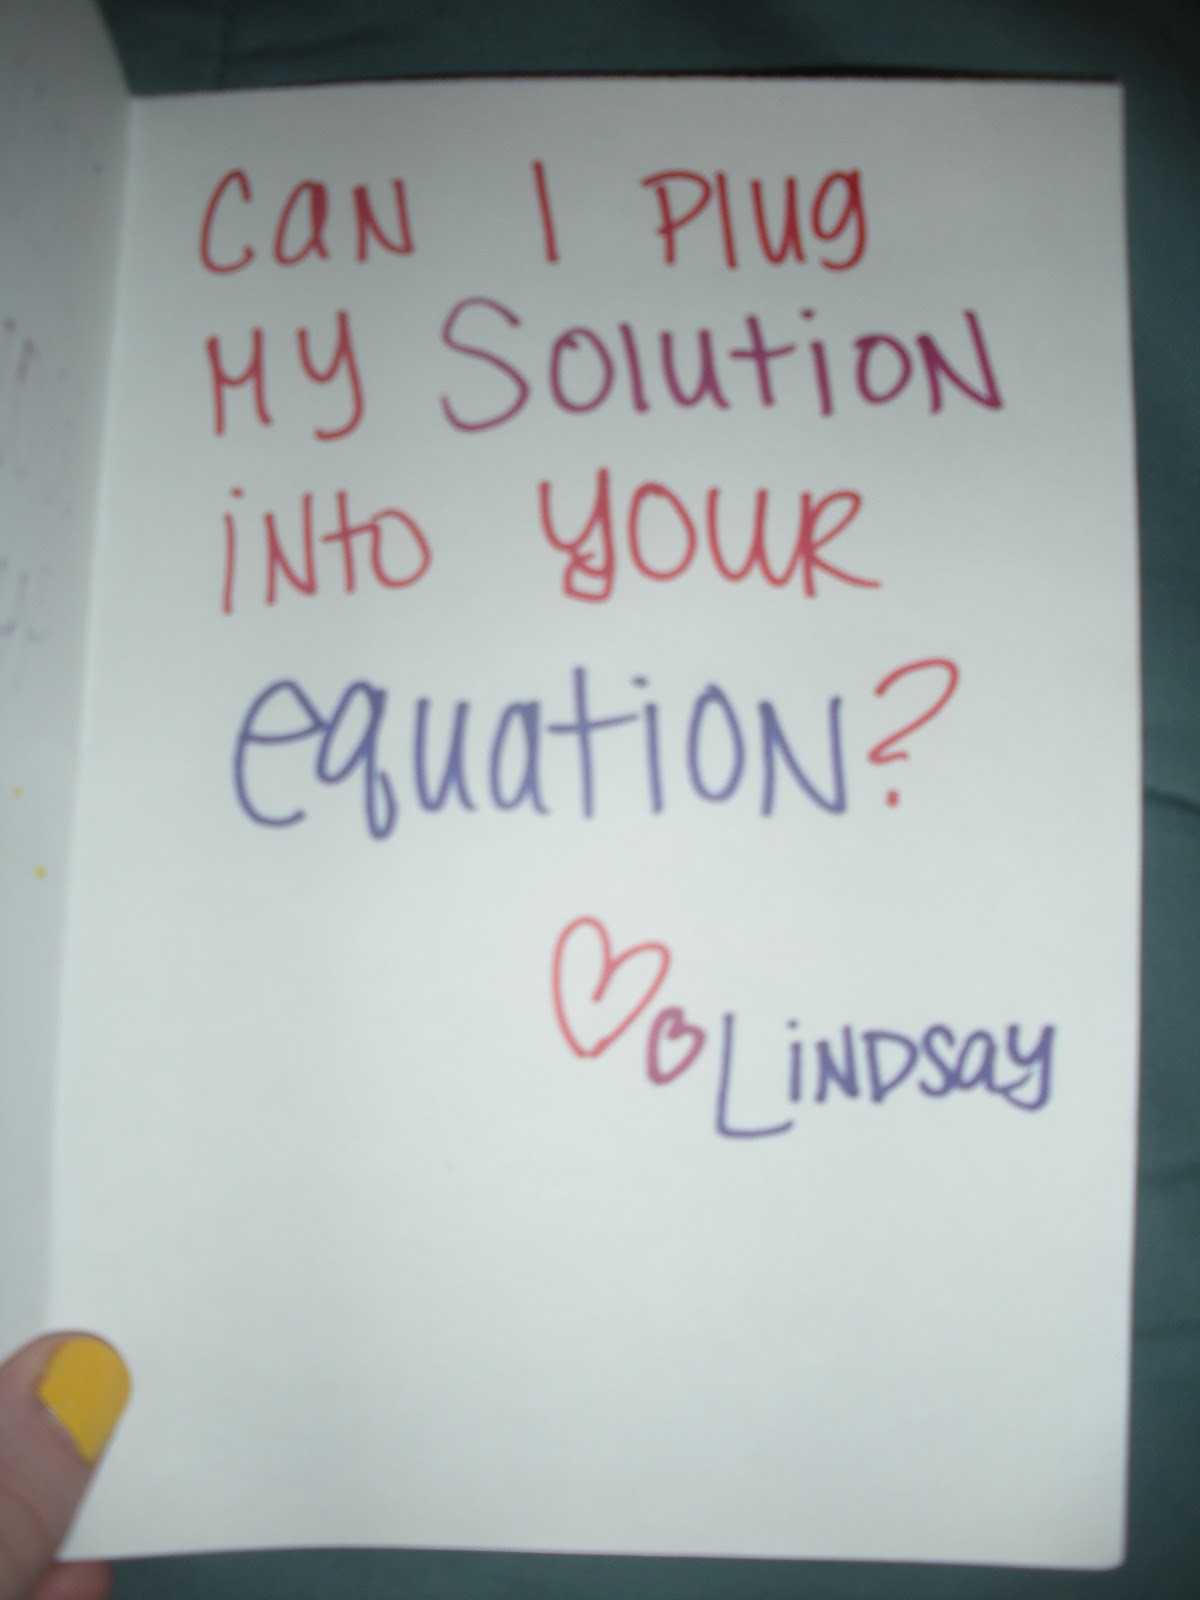 Can I Plug
My Solution
into your
equation?
Lindsay